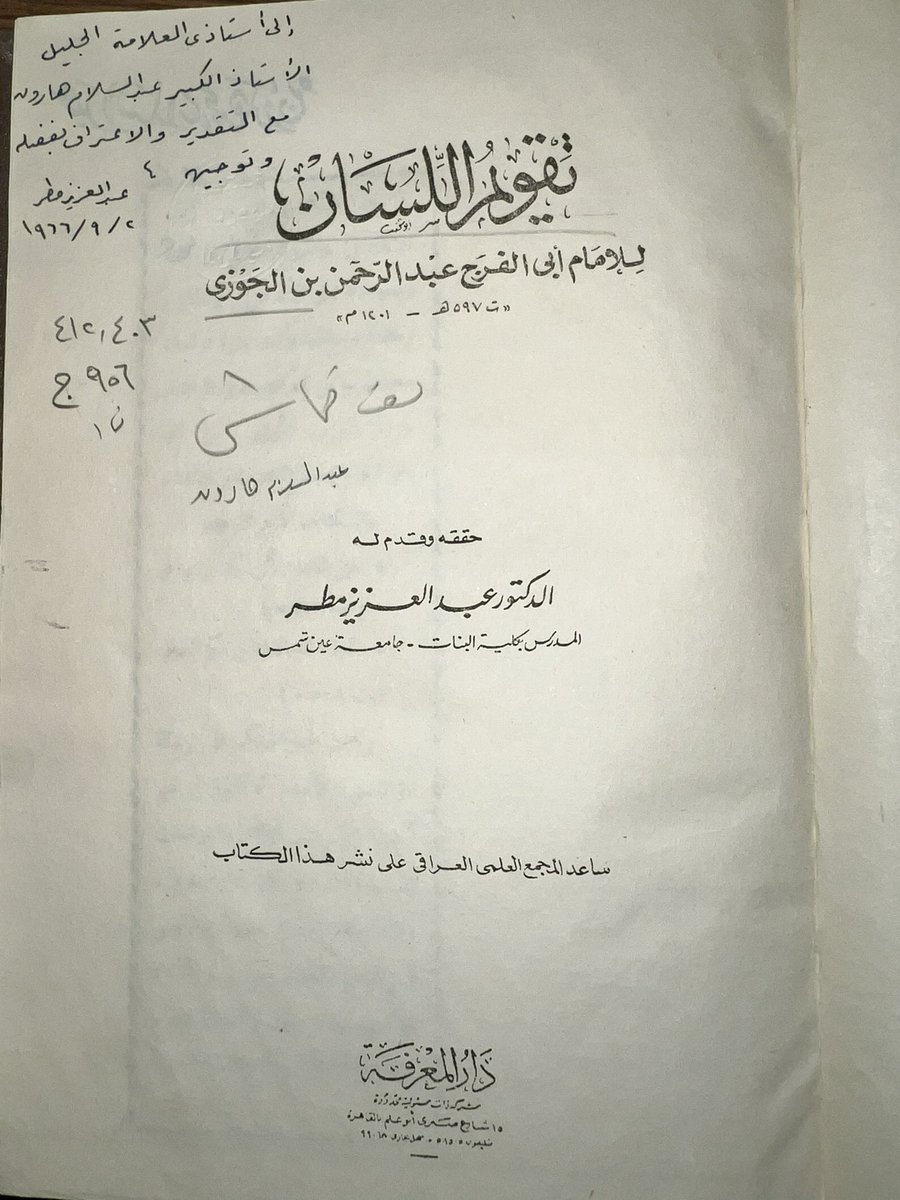 إلى أستاذى العلامة الجليل
الأستاذ الكبير عبد السلام هارون
مع التقدير والاعتراف بفضله
وتوجيهه
عبد العزيز مطر
١٩٦٦/٩/٢
تَقويمُ اللِّسَان
للإمام أبى الفرج عبْد الرّحمن بن الجَوْزى
«ت ٥٩٧هـ - ١٢٠١م»
٤١٢,٤٠٣
ج ٩٥٦
ت ١
عبد السلام هارون
حققه وقدم له
الدكتور عبد العزيز مطر
المدرس بكلية البنات - جامعة عين شمس
ساعد المجمع العلمى العراقى على نشر هذا الكتاب
دَارُ المعْرفَة
شركة ذات مسئولية محدودة
١٥ شارع صبرى أبو علم بالقاهرة